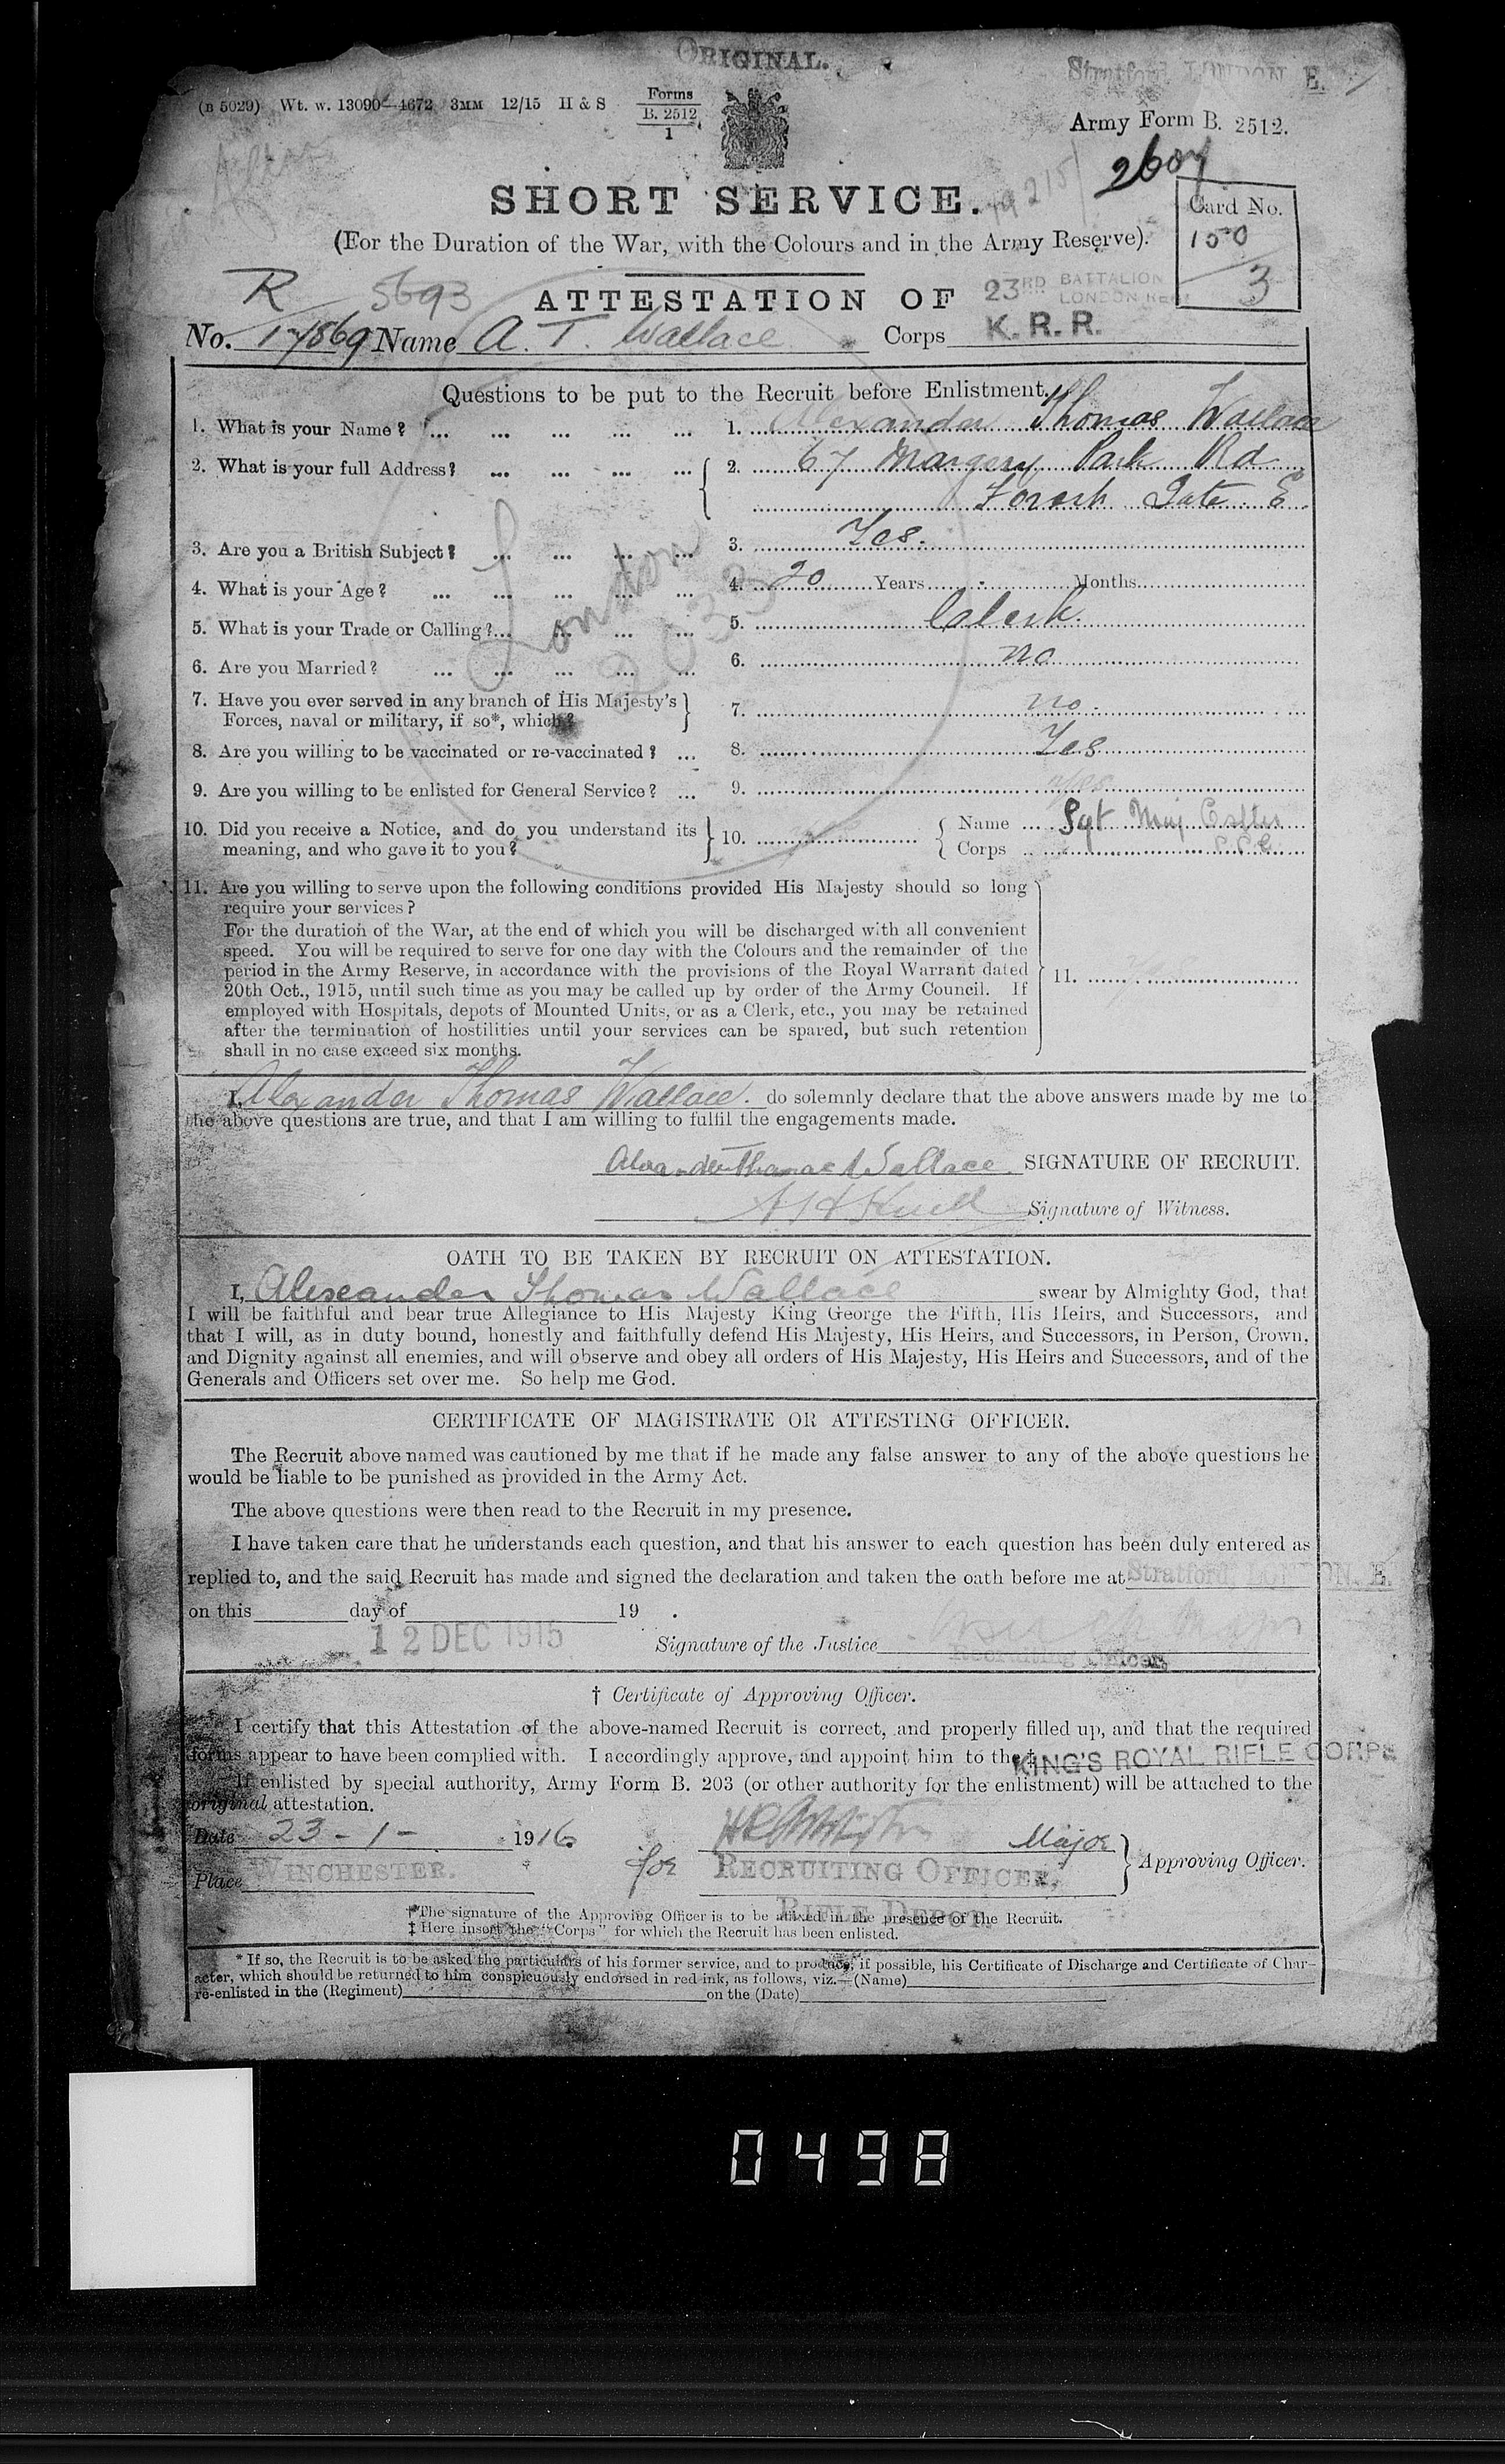 ORIGINAL.
Stratford, LONDON E.
(B 5029) Wt. w. 13090—4672 3MM 12/15 H & S Forms
B. 2512
1
Army Form B. 2512.
2607
SHORT SERVICE.
Card No.
(For the Duration of the War, with the Colours and in the Army Reserve).
150
3
R 5693
ATTESTATION OF
23RD BATTALION
LONDON REGT
No. 17869 Name A. T. Wallace Corps K. R. R.
Questions to be put to the Recruit before Enlistment.
1. What is your Name? ... ... ... ... ... 1. Alexander Thomas Wallace
2. What is your full Address? ... ... ... ... 2. 67 Margery Park Rd
Forest Gate E.
London
3. Are you a British Subject? ... ... ... ... 3. Yes.
4. What is your Age? ... ... ... ... ... 4. 20 Years - Months
5. What is your Trade or Calling?... ... ... ... 5. Clerk.
6. Are you Married? ... ... ... ... ... 6. no
7. Have you ever served in any branch of His Majesty's
Forces, naval or military, if so*, which? 7. no.
8. Are you willing to be vaccinated or re-vaccinated? ... 8. Yes
9. Are you willing to be enlisted for General Service? ... 9. yes
10. Did you receive a Notice, and do you understand its
meaning, and who gave it to you? 10. Name ... Sgt Maj
Corps ...
11. Are you willing to serve upon the following conditions provided His Majesty should so long
require your services?
For the duration of the War, at the end of which you will be discharged with all convenient
speed. You will be required to serve for one day with the Colours and the remainder of the
period in the Army Reserve, in accordance with the provisions of the Royal Warrant dated
20th Oct., 1915, until such time as you may be called up by order of the Army Council. If
employed with Hospitals, depots of Mounted Units, or as a Clerk, etc., you may be retained
after the termination of hostilities until your services can be spared, but such retention
shall in no case exceed six months.
11.
I, Alexander Thomas Wallace. do solemnly declare that the above answers made by me to
the above questions are true, and that I am willing to fulfil the engagements made.
Alexander Thomas Wallace. SIGNATURE OF RECRUIT.
Signature of Witness.
OATH TO BE TAKEN BY RECRUIT ON ATTESTATION.
I, Alexander Thomas Wallace swear by Almighty God, that
I will be faithful and bear true Allegiance to His Majesty King George the Fifth, His Heirs, and Successors, and
that I will, as in duty bound, honestly and faithfully defend His Majesty, His Heirs, and Successors, in Person, Crown,
and Dignity against all enemies, and will observe and obey all orders of His Majesty, His Heirs and Successors, and of the
Generals and Officers set over me. So help me God.
CERTIFICATE OF MAGISTRATE OR ATTESTING OFFICER.
The Recruit above named was cautioned by me that if he made any false answer to any of the above questions he
would be liable to be punished as provided in the Army Act.
The above questions were then read to the Recruit in my presence.
I have taken care that he understands each question, and that his answer to each question has been duly entered as
replied to, and the said Recruit has made and signed the declaration and taken the oath before me at Stratford, LONDON, E.
on this day of 19 .
12 DEC 1915 Signature of the Justice
Recruiting Officer,
† Certificate of Approving Officer.
I certify that this Attestation of the above-named Recruit is correct, and properly filled up, and that the required
forms appear to have been complied with. I accordingly approve, and appoint him to the ‡ KING'S ROYAL RIFLE CORPS
If enlisted by special authority, Army Form B. 203 (or other authority for the enlistment) will be attached to the
original attestation.
Date 23 - 1 - 1916. Major
Approving Officer.
Place WINCHESTER. for RECRUITING OFFICER,
RIFLE DEPOT
† The signature of the Approving Officer is to be affixed in the presence of the Recruit.
‡ Here insert the "Corps" for which the Recruit has been enlisted.
* If so, the Recruit is to be asked the particulars of his former service, and to produce, if possible, his Certificate of Discharge and Certificate of Char-
acter, which should be returned to him conspicuously endorsed in red ink, as follows, viz.—(Name)
re-enlisted in the (Regiment) on the (Date)
0498